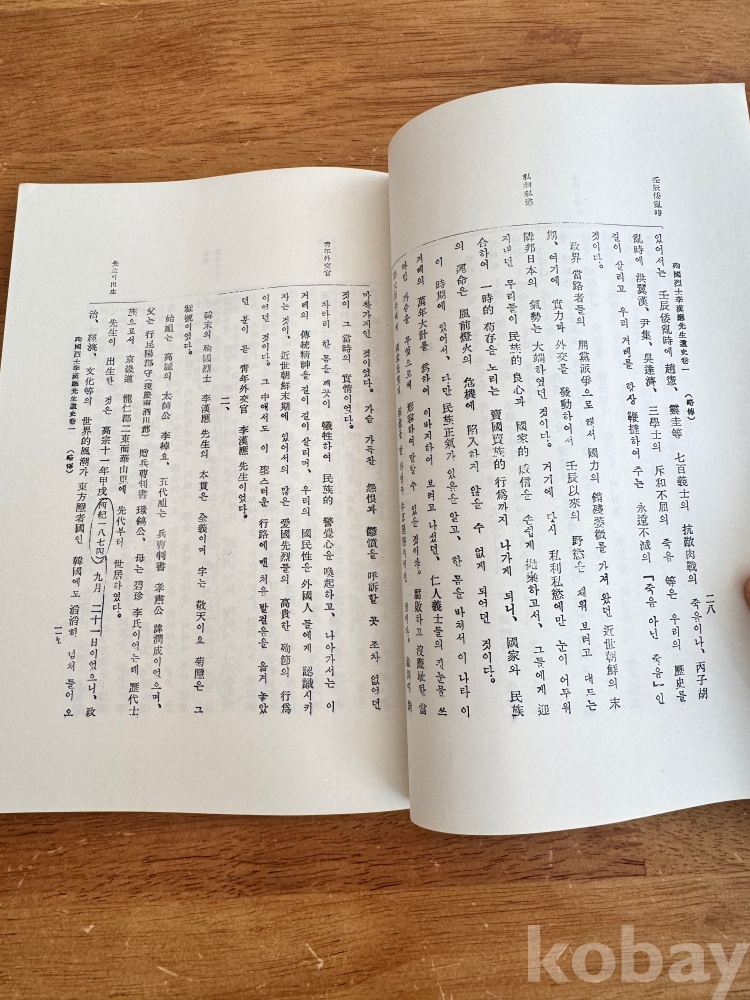 壬辰倭亂時
私利私慾
殉國烈士李漢應先生遺史卷一 (略傳)
二八
있어서는 壬辰倭亂時에 趙憲、靈圭等 七百義士의 抗敵肉戰의 죽음이나、丙子胡
亂時에 洪翼漢、尹集、吳達濟、三學士의 斥和不屈의 죽음 等은 우리의 歷史를
길이 살리고 우리 겨레를 항상 鞭撻하여 주는 永遠不滅의 『죽음 아닌 죽음』인
것이다。
政界 當路者들의 朋黨派爭으로 해서 國力의 銷殘萎微를 가져 왔던 近世朝鮮의 末
期、여기에 實力과 外交를 發動하여서 壬辰以來의 野慾은 채워 보려고 대드는
隣邦日本의 氣勢는 大端하였던 것이다。거기에 다시 私利私慾에만 눈이 어두워
지녀던 무리들이 民族的 良心과 國家的 威信을 손쉽게 抛棄하고서、그들에게 迎
合하여 一時的 苟存을 노리는 賣國賣族的 行爲까지 나가게 되니、國家와 民族
의 運命은 風前燈火의 危機에 陷入하지 않을 수 없게 되어던 것이다。
이 時期에 있어서、다만 民族正氣가 있음을 알고、한몸을 바쳐서 이 나라 이
겨레의 萬年大計를 爲하여 이바지하여 보려고 나섰던、仁人義士들의 피눈물 쓰
라린 가슴을 무엇으로써 形容하여 말할 수 있을 것이랴。腐敗하고 沒廉恥한 當
靑年外交官
先生의出生
마찬가지인 것이었다。가슴 가득찬 怨恨과 鬱憤을 呼訴할 곳 조차 없어던
것이 그 當時의 實情이었다。
차라리 한몸을 깨끗이 犧牲하여 民族的 警覺心을 喚起하고、나아가서는 이
겨레의 傳統精神을 길이 길이 살리며、우리의 國民性을 外國人 들에게 認識시키
자는 것이、近世朝鮮末期에 있어서의 많은 愛國先烈들의 高貴한 殉節의 行爲
이었던 것이다。그 中에서도 이 聖스러운 行路에 맨처음 발걸음을 옮겨 놓았
던 분이 곧 靑年外交官 李漢應 先生이었다。
二、
韓末의 殉國烈士 李漢應 先生의 本貫은 全義이며 字는 敬天이요 菊隱은 그
雅號이었다。
始祖는 高麗의 太師公 李棹요、五代祖는 兵曹判書 孝肅公 諱潤成이었으며、
父는 行丹陽郡守(現慶南泗川郡) 贈兵曹判書 璟鎬公、母는 碧珍 李氏이었는데 歷代士
族으로서 京畿道 龍仁郡二東面華山里에 先代부터 世居하였다。
先生이 出生한 것은 高宗十一年甲戌(西紀一八七四)九月 二十一日이었으니、政
治、經濟、文化等의 世界的風潮가 東方歷者國인 韓國에도 滔滔히 넘쳐 들어 오
殉國烈士李漢應先生遺史卷一 (略傳)
二九
kobay